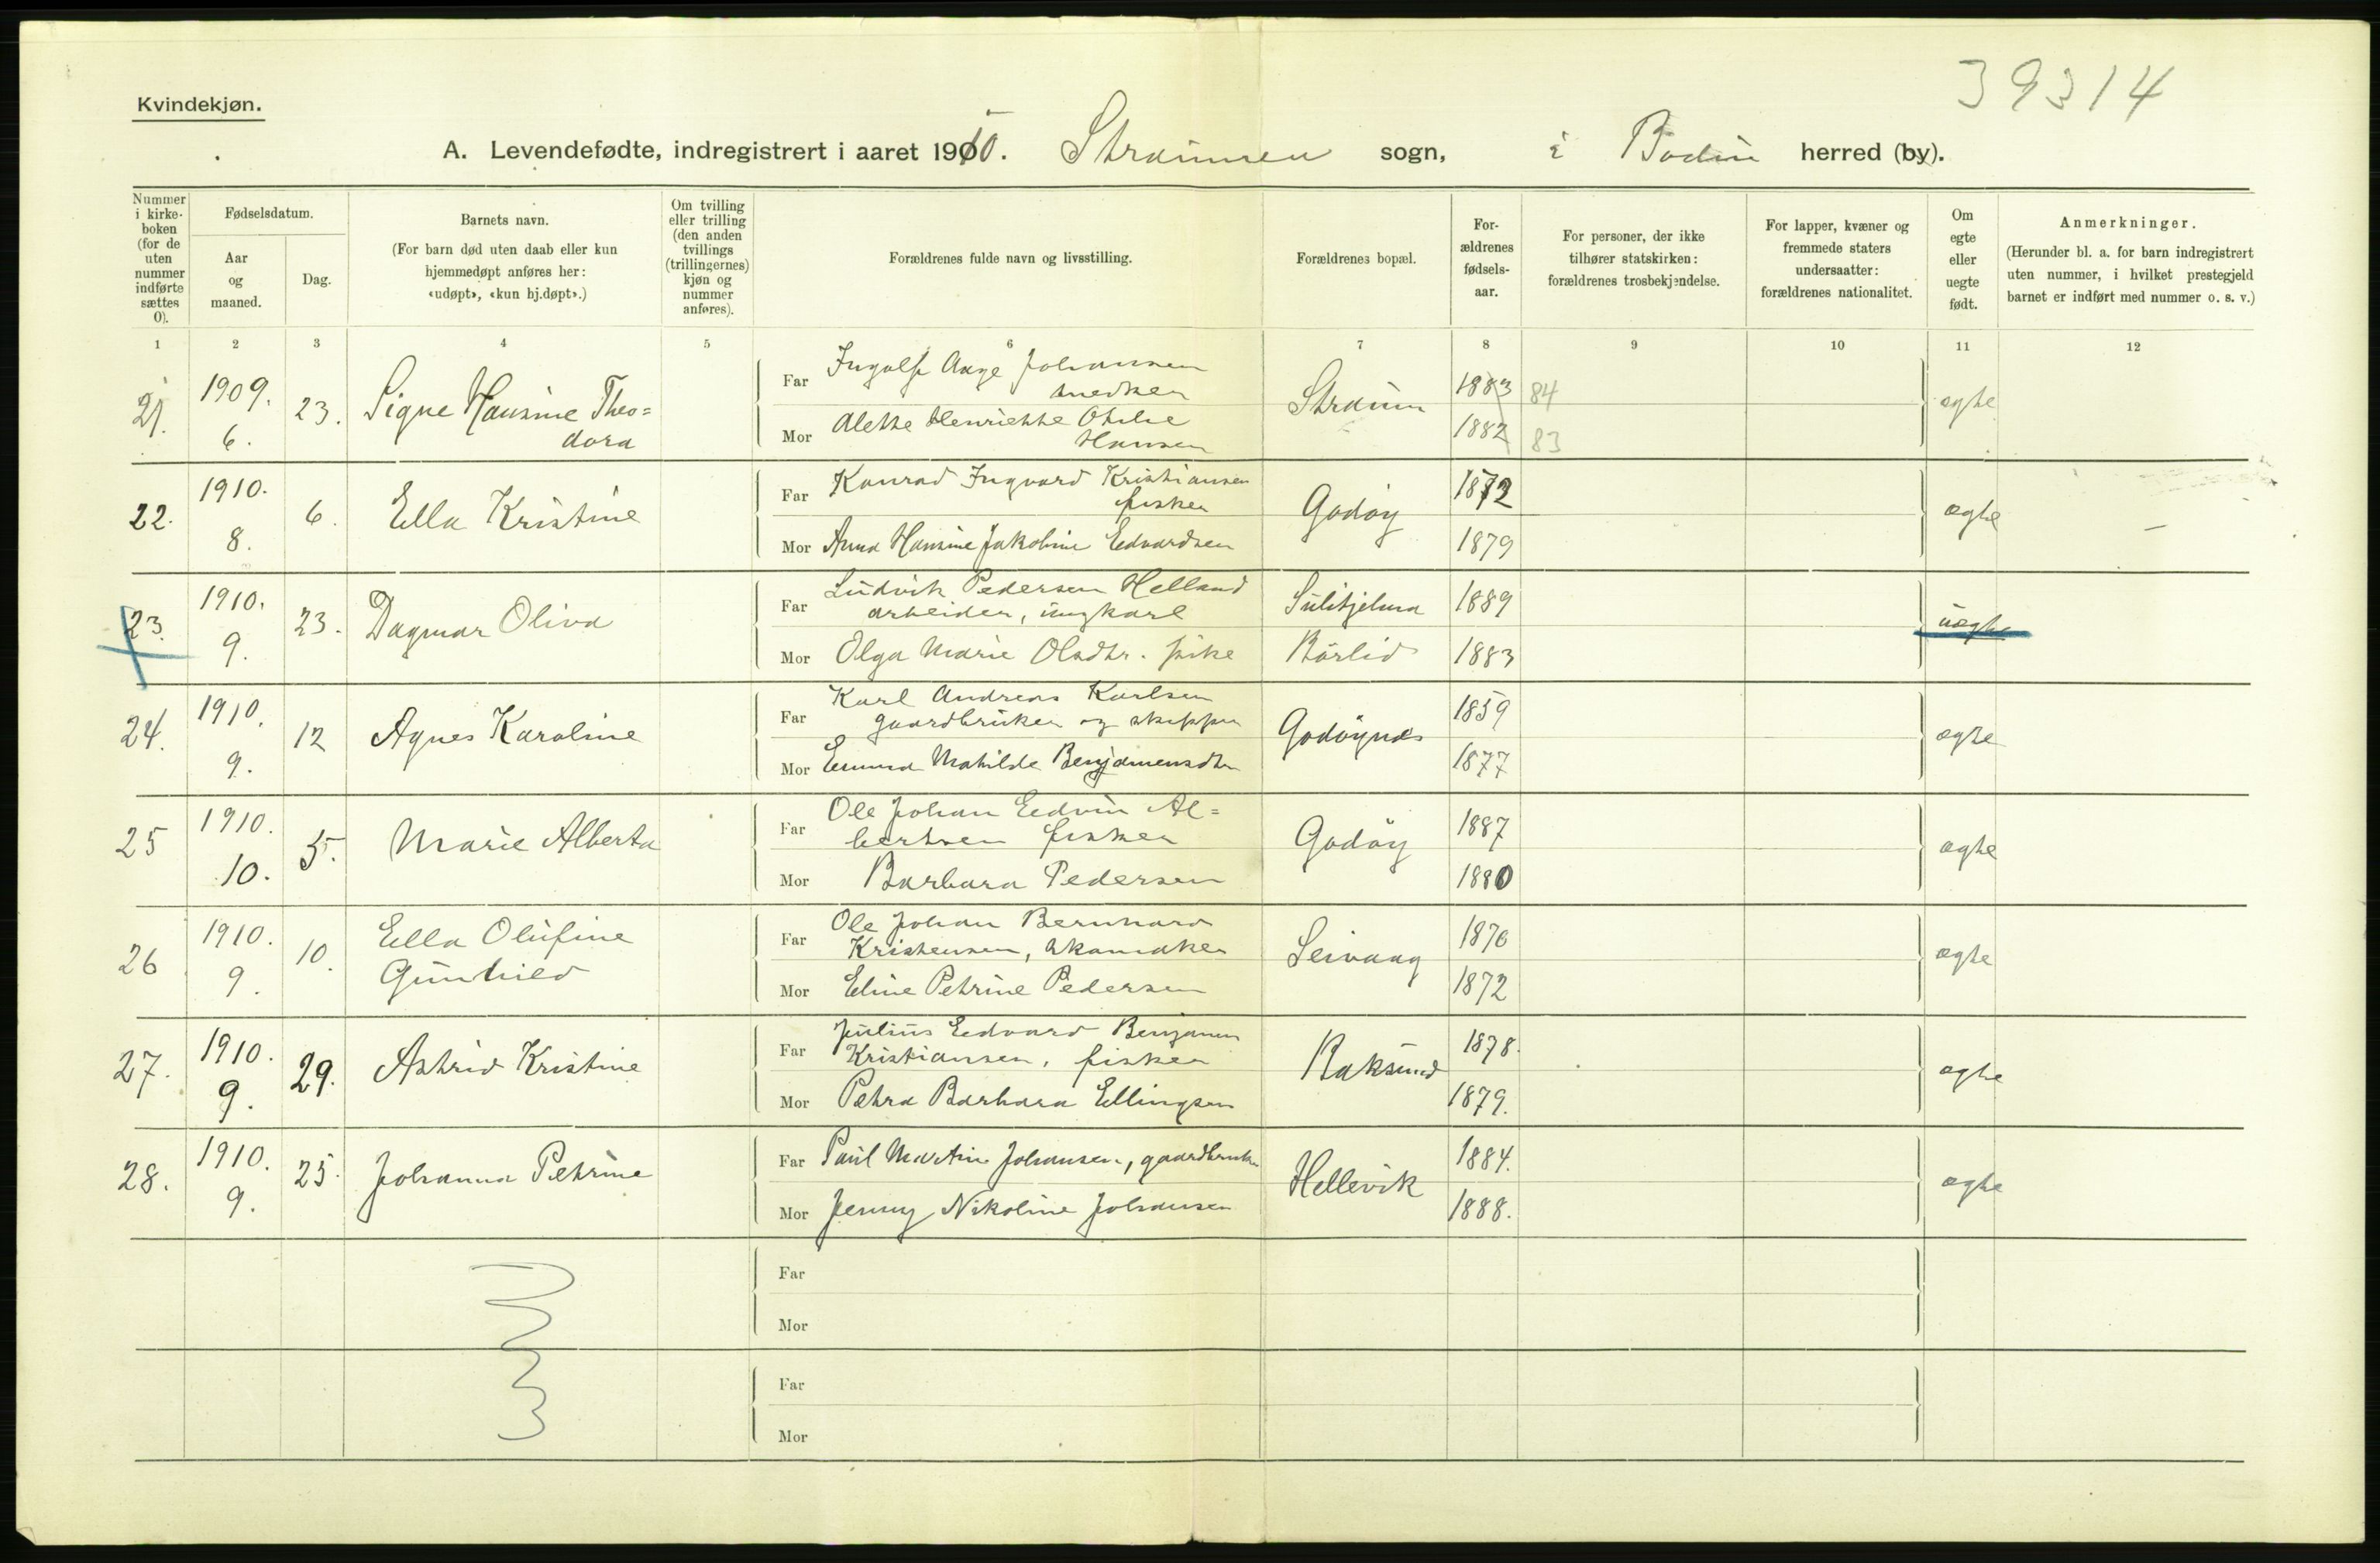 39314
Kvindekjøn.
A. Levendefødte, indregistrert i aaret 1910. Straumen sogn, i Bodin herred (by).
Nummer i kirke-boken (for de uten nummer indførte sættes 0).
Fødselsdatum.
Aar og maaned.
Dag.
Barnets navn.
(For barn død uten daab eller kun hjemmedøpt anføres her: «udøpt», «kun hj.døpt».)
Om tvilling eller trilling (den anden tvillings (trillingernes) kjøn og nummer anføres).
Forældrenes fulde navn og livsstilling.
Forældrenes bopæl.
For-ældrenes fødsels-aar.
For personer, der ikke tilhører statskirken: forældrenes trosbekjendelse.
For lapper, kvæner og fremmede staters undersaatter: forældrenes nationalitet.
Om egte eller uegte født.
Anmerkninger.
(Herunder bl. a. for barn indregistrert uten nummer, i hvilket prestegjeld barnet er indført med nummer o. s. v.)
1 2 3 4 5 6 7 8 9 10 11 12
21. 1909. 6. 23. Signe Hansine Theo=
dora
Far Ingolf Aage Johansen
snedker
Straum 1883 84 ægte
Mor Alette Henriette Otilie
Hansen
1882 83
22. 1910. 8. 6. Ella Kristine
Far Konrad Ingvard Kristiansen
fisker
Godøy 1872 ægte —
Mor Anna Hansine Jakobine Edvardsen 1879
23. 1910. 9. 23. Dagmar Oliva
Far Ludvik Pedersen Helland
arbeider, ungkarl
Sulitjelma 1889 uægte
Mor Olga Marie Olsdtr. pike Børlid 1883
24. 1910. 9. 12 Agnes Karoline
Far Karl Andreas Karlsen
gaardbruker og skipper
Godøynes 1859 ægte
Mor Emma Mathilde Benjamensdtr 1877
25 1910. 10. 5. Marie Alberta
Far Ole Johan Edvin Al=
bertsen fisker
Godøy 1887 ægte
Mor Barbara Pedersen 1880
26 1910. 9. 10. Ella Olufine
Gunhild
Far Ole Johan Bernhard
Kristensen, skomaker
Seivaag 1870 ægte
Mor Eline Petrine Pedersen 1872
27. 1910. 9. 29. Astrid Kristine
Far Julius Edvard Benjamin
Kristiansen, fisker
Naksund 1878. ægte
Mor Petra Barbara Ellingsen 1879.
28. 1910. 9. 25. Johanna Petrine
Far Paul Martin Johansen, gaardbruker
Hellevik 1884. ægte
Mor Jenny Nikoline Johansen 1888.
Far
Mor
Far
Mor